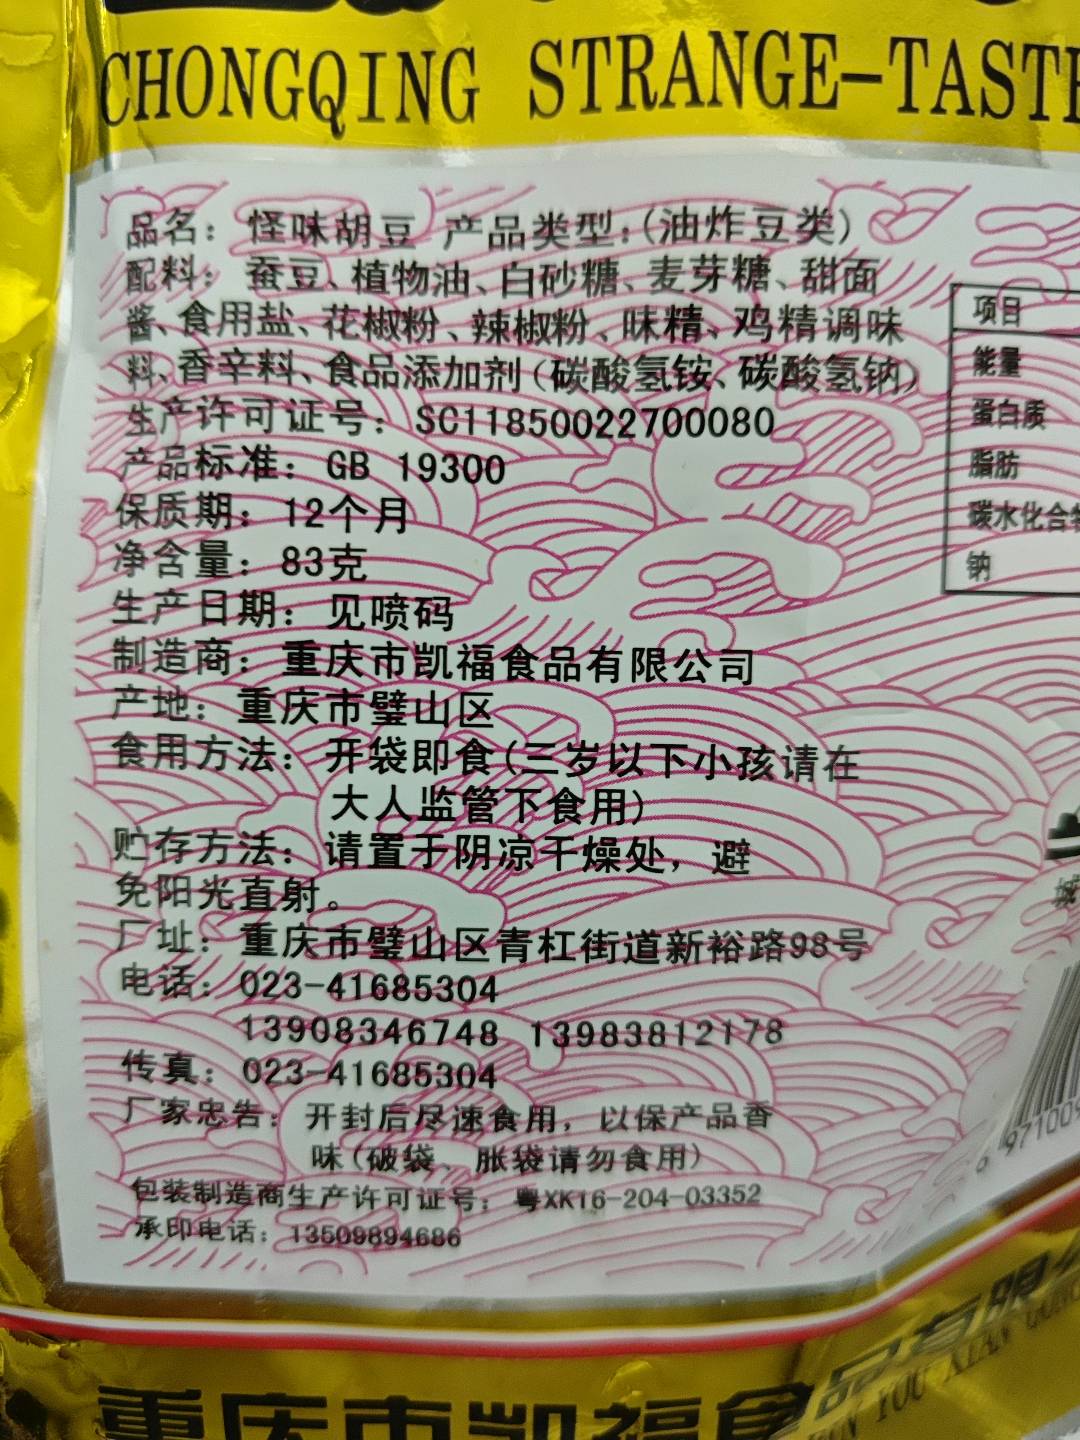 CHONGQING STRANGE-TASTE
品名：怪味胡豆 产品类型：（油炸豆类）
配料：蚕豆、植物油、白砂糖、麦芽糖、甜面
酱、食用盐、花椒粉、辣椒粉、味精、鸡精调味
料、香辛料、食品添加剂（碳酸氢铵、碳酸氢钠）
生产许可证号：SC11850022700080
产品标准：GB 19300
保质期：12个月
净含量：83克
生产日期：见喷码
制造商：重庆市凯福食品有限公司
产地：重庆市璧山区
食用方法：开袋即食（三岁以下小孩请在
大人监管下食用）
贮存方法：请置于阴凉干燥处，避
免阳光直射。
厂址：重庆市璧山区青杠街道新裕路98号
电话：023-41685304
13908346748 13983812178
传真：023-41685304
厂家忠告：开封后尽速食用，以保产品香
味（破袋、胀袋请勿食用）
包装制造商生产许可证号：粤XK16-204-03352
承印电话：13509894686
项目
能量
蛋白质
脂肪
碳水化合物
钠
城
697100
重庆市凯福食品有限公
YOU XIAN GONG